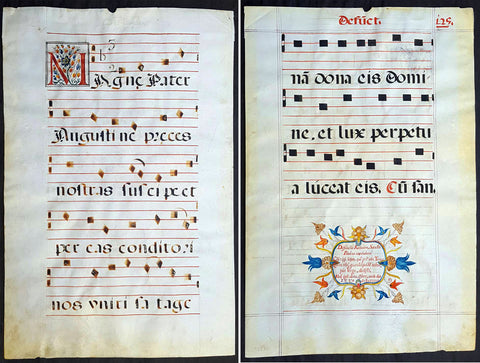 MAgne Pater
Augustine preces
nostras suscipe et
per eas conditori
nos uniri satage
Defūct.
125.
nā dona eis Domi
ne, et lux perpetu
a luceat eis. Cū san,